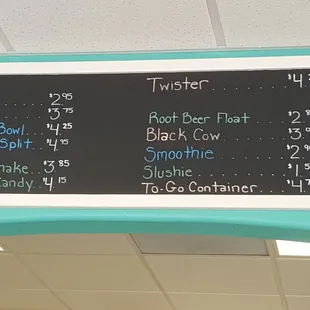 $2.95
$3.75
Bowl. $4.25
Split.. $4.95
hake.. $3.85
Candy. $4.15
Twister ........ $4.
Root Beer Float .... $2.
Black Cow ........ $3.
Smoothie ........ $2.
Slushie .......... $1.
To-Go Container .... $4.